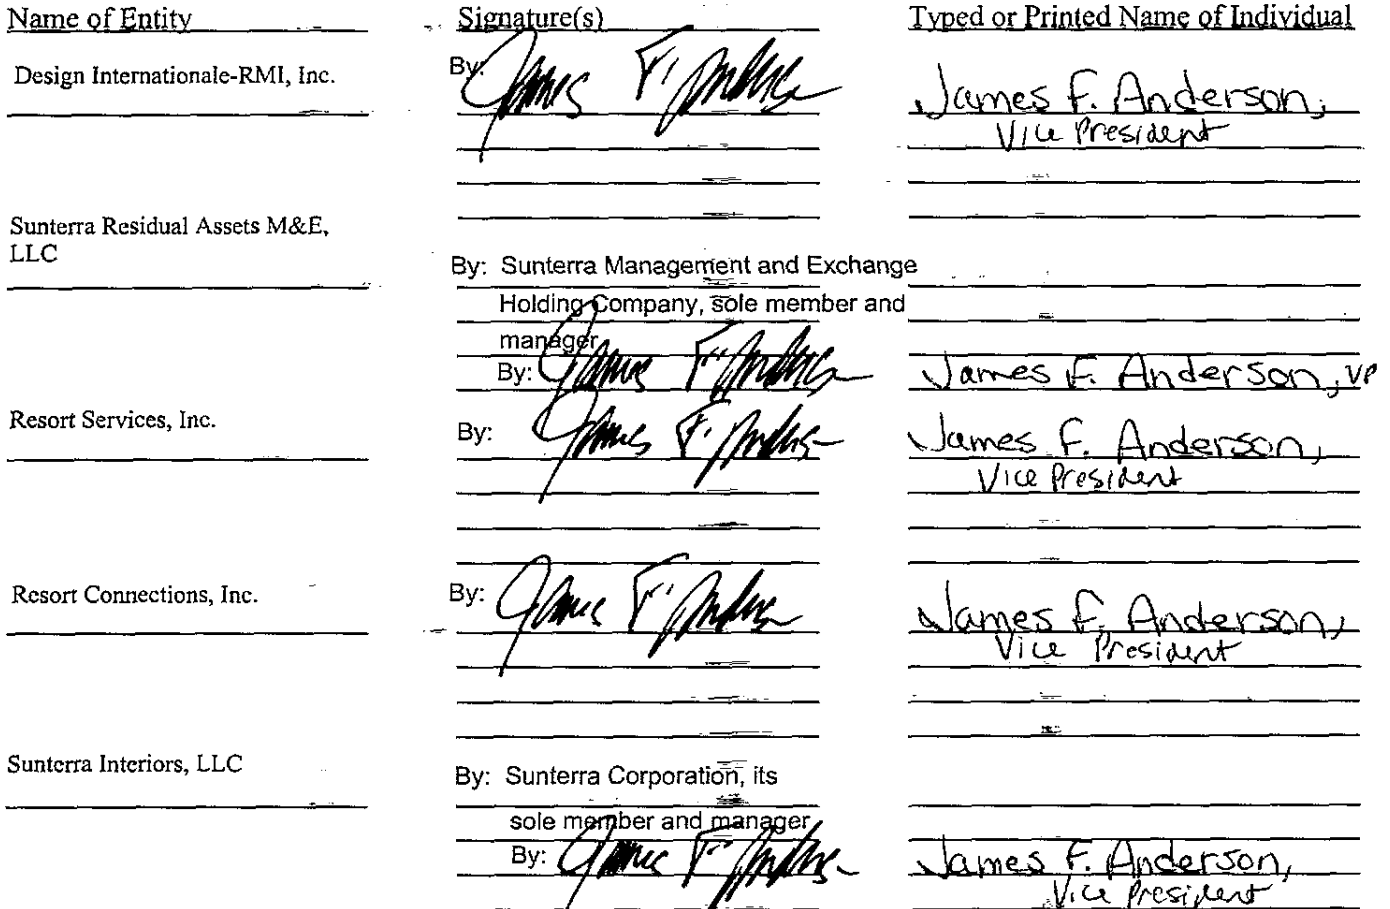 Name of Entity Signature(s) Typed or Printed Name of Individual
Design Internationale-RMI, Inc. By: James F. Anderson James F. Anderson,
Vice President
Sunterra Residual Assets M&E,
LLC
By: Sunterra Management and Exchange
Holding Company, sole member and
manager
By: James F. Anderson James F. Anderson, VP
Resort Services, Inc. By: James F. Anderson James F. Anderson,
Vice President
Resort Connections, Inc. By: James F. Anderson James F. Anderson,
Vice President
Sunterra Interiors, LLC By: Sunterra Corporation, its
sole member and manager
By: James F. Anderson James F. Anderson,
Vice President